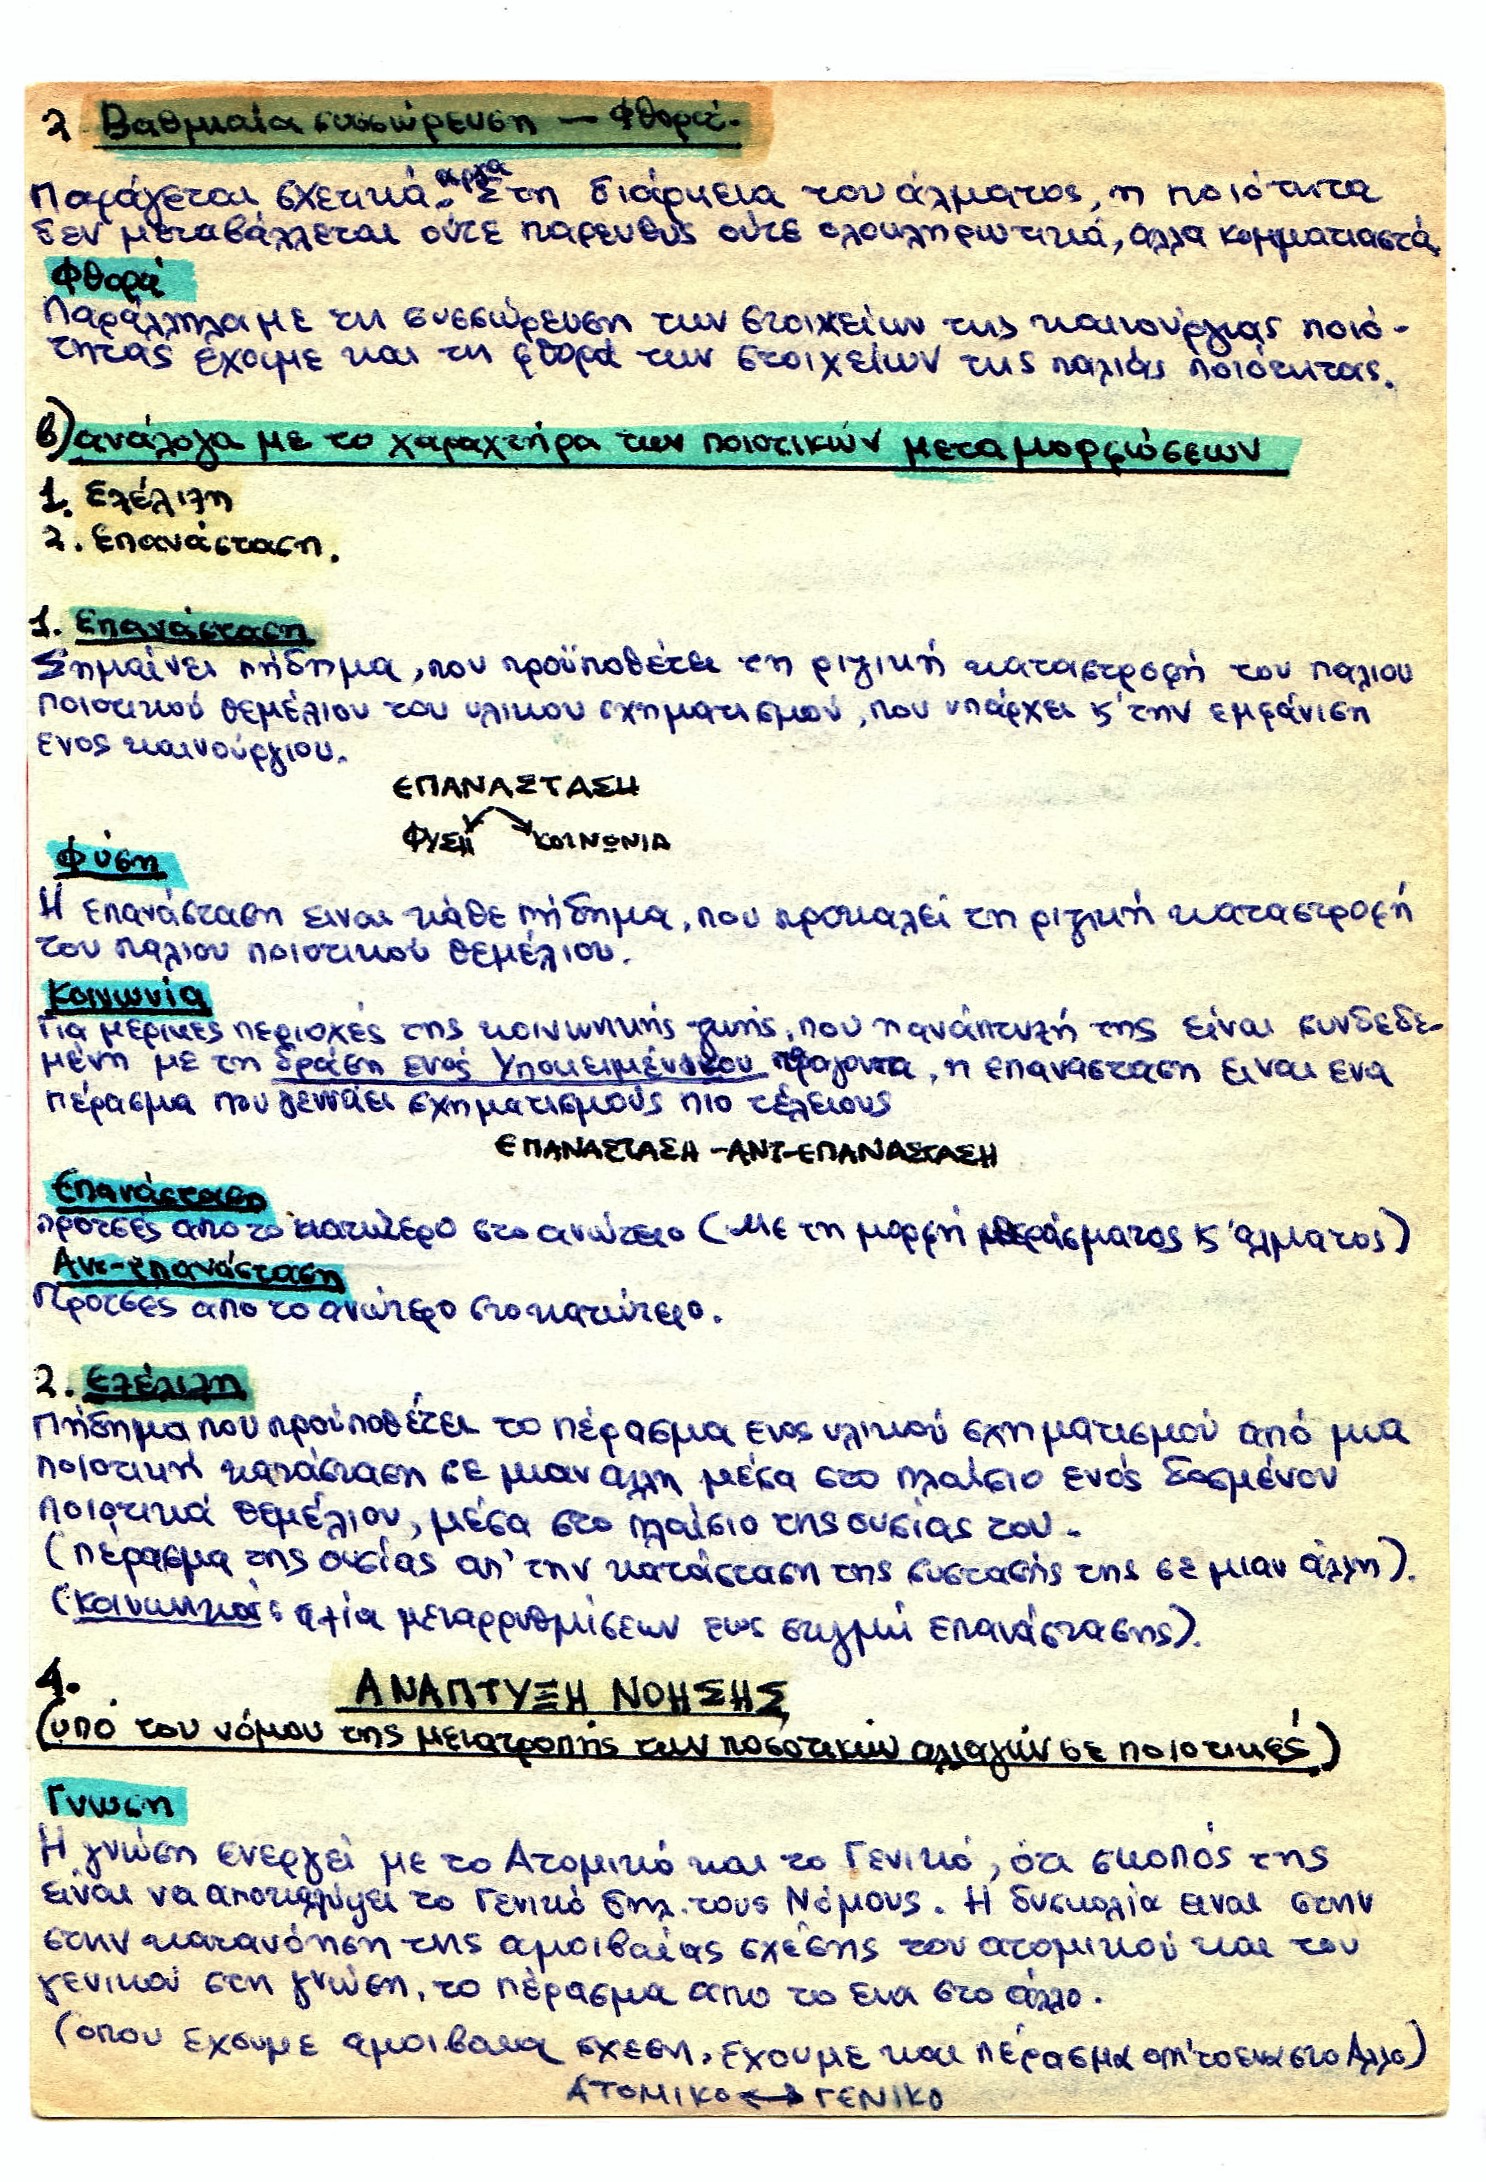 2 Βαθμιαία συσσώρευση — Φθορά.
Παράγεται σχετικά αργά. Στη διάρκεια του άλματος, η ποιότητα
δεν μεταβάλλεται ούτε παρευθύς ούτε ολοκληρωτικά, αλλα κομματιαστά
Φθορά
Παράλληλα με τη συσσώρευση των στοιχείων της καινούργιας ποιό-
τητας έχομε και τη φθορά των στοιχείων της παλιάς ποιότητας.
β) ανάλογα με το χαραχτήρα των ποιοτικών μεταμορφώσεων
1. Εξέλιξη
2. Επανάσταση.
1. Επανάσταση
Σημαίνει πήδημα, που προϋποθέτει τη ριζική καταστροφή του παλιου
ποιοτικού θεμέλιου του υλικου σχηματισμού, που υπάρχει ϗ' την εμφάνιση
ενος καινούργιου.
ΕΠΑΝΑΣΤΑΣΗ
ΦΥΣΗ ΚΟΙΝΩΝΙΑ
Φύση
Η επανάσταση ειναι κάθε πήδημα, που προκαλεί τη ριζική καταστροφή
του παλιου ποιοτικού θεμέλιου.
Κοινωνία
Για μερικες περιοχές της κοινωνικής ζωής, που η ανάπτυξή της είναι συνδεδε-
μένη με τη δράση ενός Υποκειμένικου παράγοντα, η επανασταση ειναι ενα
πέρασμα που γεννάει σχηματισμούς πιο τέλειους
ΕΠΑΝΑΣΤΑΣΗ - ΑΝΤ-ΕΠΑΝΑΣΤΑΣΗ
Επανάσταση
προτσές απο το κατώτερο στο ανώτερο (Με τη μορφή περάσματος ϗ' άλματος)
Αντ-επανάσταση
Προτσές απο το ανώτερο στο κατώτερο.
2. Εξέλιξη
Πήδημα που προϋποθέτει το πέρασμα ενος υλικού σχηματισμού από μια
ποιοτική κατάσταση σε μιαν αλλη μέσα στο πλαίσιο ενός δοσμένου
ποιοτικά θεμέλιου, μέσα στο πλαίσιο της ουσίας του.
(πέρασμα της ουσίας απ' την κατάσταση της συστασής της σε μιαν άλλη).
(κοινωνικά: αξία μεταρρυθμίσεων εως στιγμή επανάστασης).
4. ΑΝΑΠΤΥΞΗ ΝΟΗΣΗΣ
(υπό του νόμου της μετατροπής των ποσοτικών αλλαγών σε ποιοτικές)
Γνωση
Η γνώση ενεργεί με το Ατομικό και το Γενικό, ότι σκοπός της
είναι να αποκαλύψει το Γενικό δηλ. τους Νόμους. Η δυσκολία ειναι στην
στην κατανόηση της αμοιβαίας σχέσης του ατομικού και του
γενικού στη γνώση, το πέρασμα απο το ενα στο άλλο.
(οπου εχουμε αμοιβαια σχεση, εχουμε και πέρασμα απ' το ενα στο Αλλο)
ΑΤΟΜΙΚΟ ↔ ΓΕΝΙΚΟ